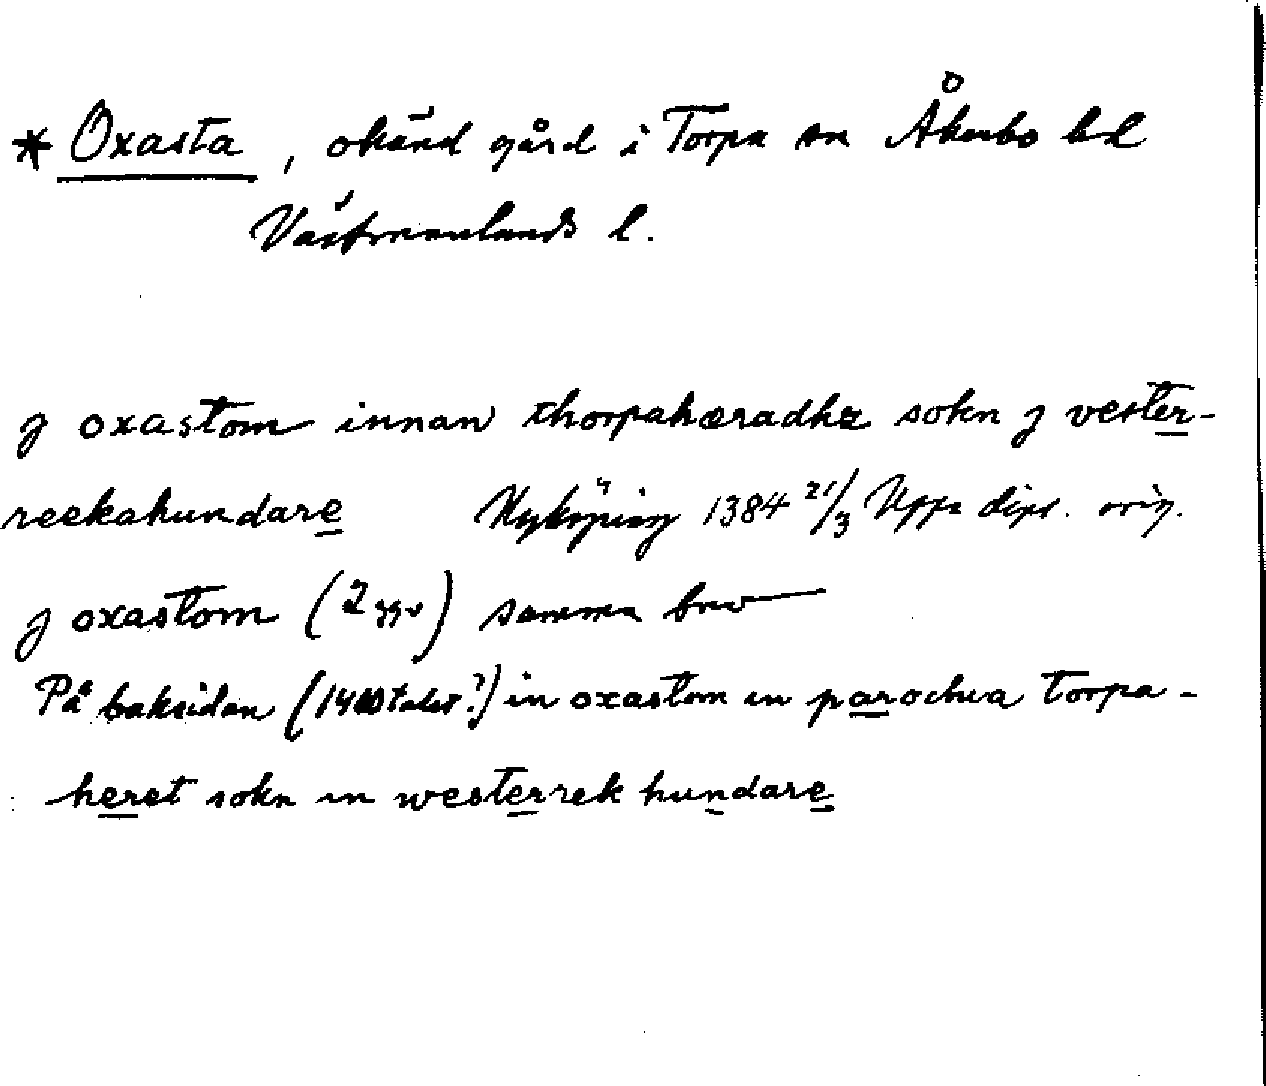 * Oxasta, okänd gård i Torpa sn Åkerbo hd
Västmanlands l.
j oxastom innan thorpahæradhz sokn j vester-
reekahundare Nyköping 1384 21/3 Uppa dipl. orig.
j oxastom (2 ggr) samma brev
På baksidan (1400talet?) in oxastom in parochia torpa-
heret sokn in westerrek hundare